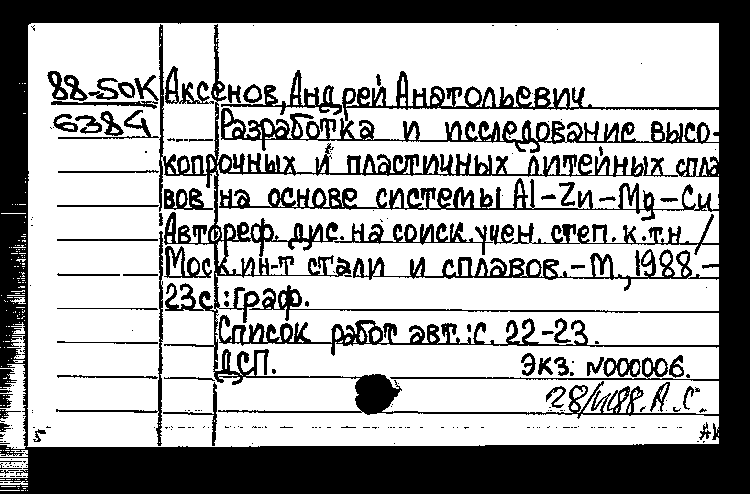 88-50К Аксенов, Андрей Анатольевич.
6384 Разработка и исследование высо-
копрочных и пластичных литейных спла
вов на основе системы Al-Zn-Mg-Cu
Автореф. дис. на соиск. учен. степ. к.т.н. /
Моск. ин-т стали и сплавов. - М., 1988. -
23с.: граф.
Список работ авт.: с. 22-23.
ДСП. Экз. N000006.
А.С.
5 АК